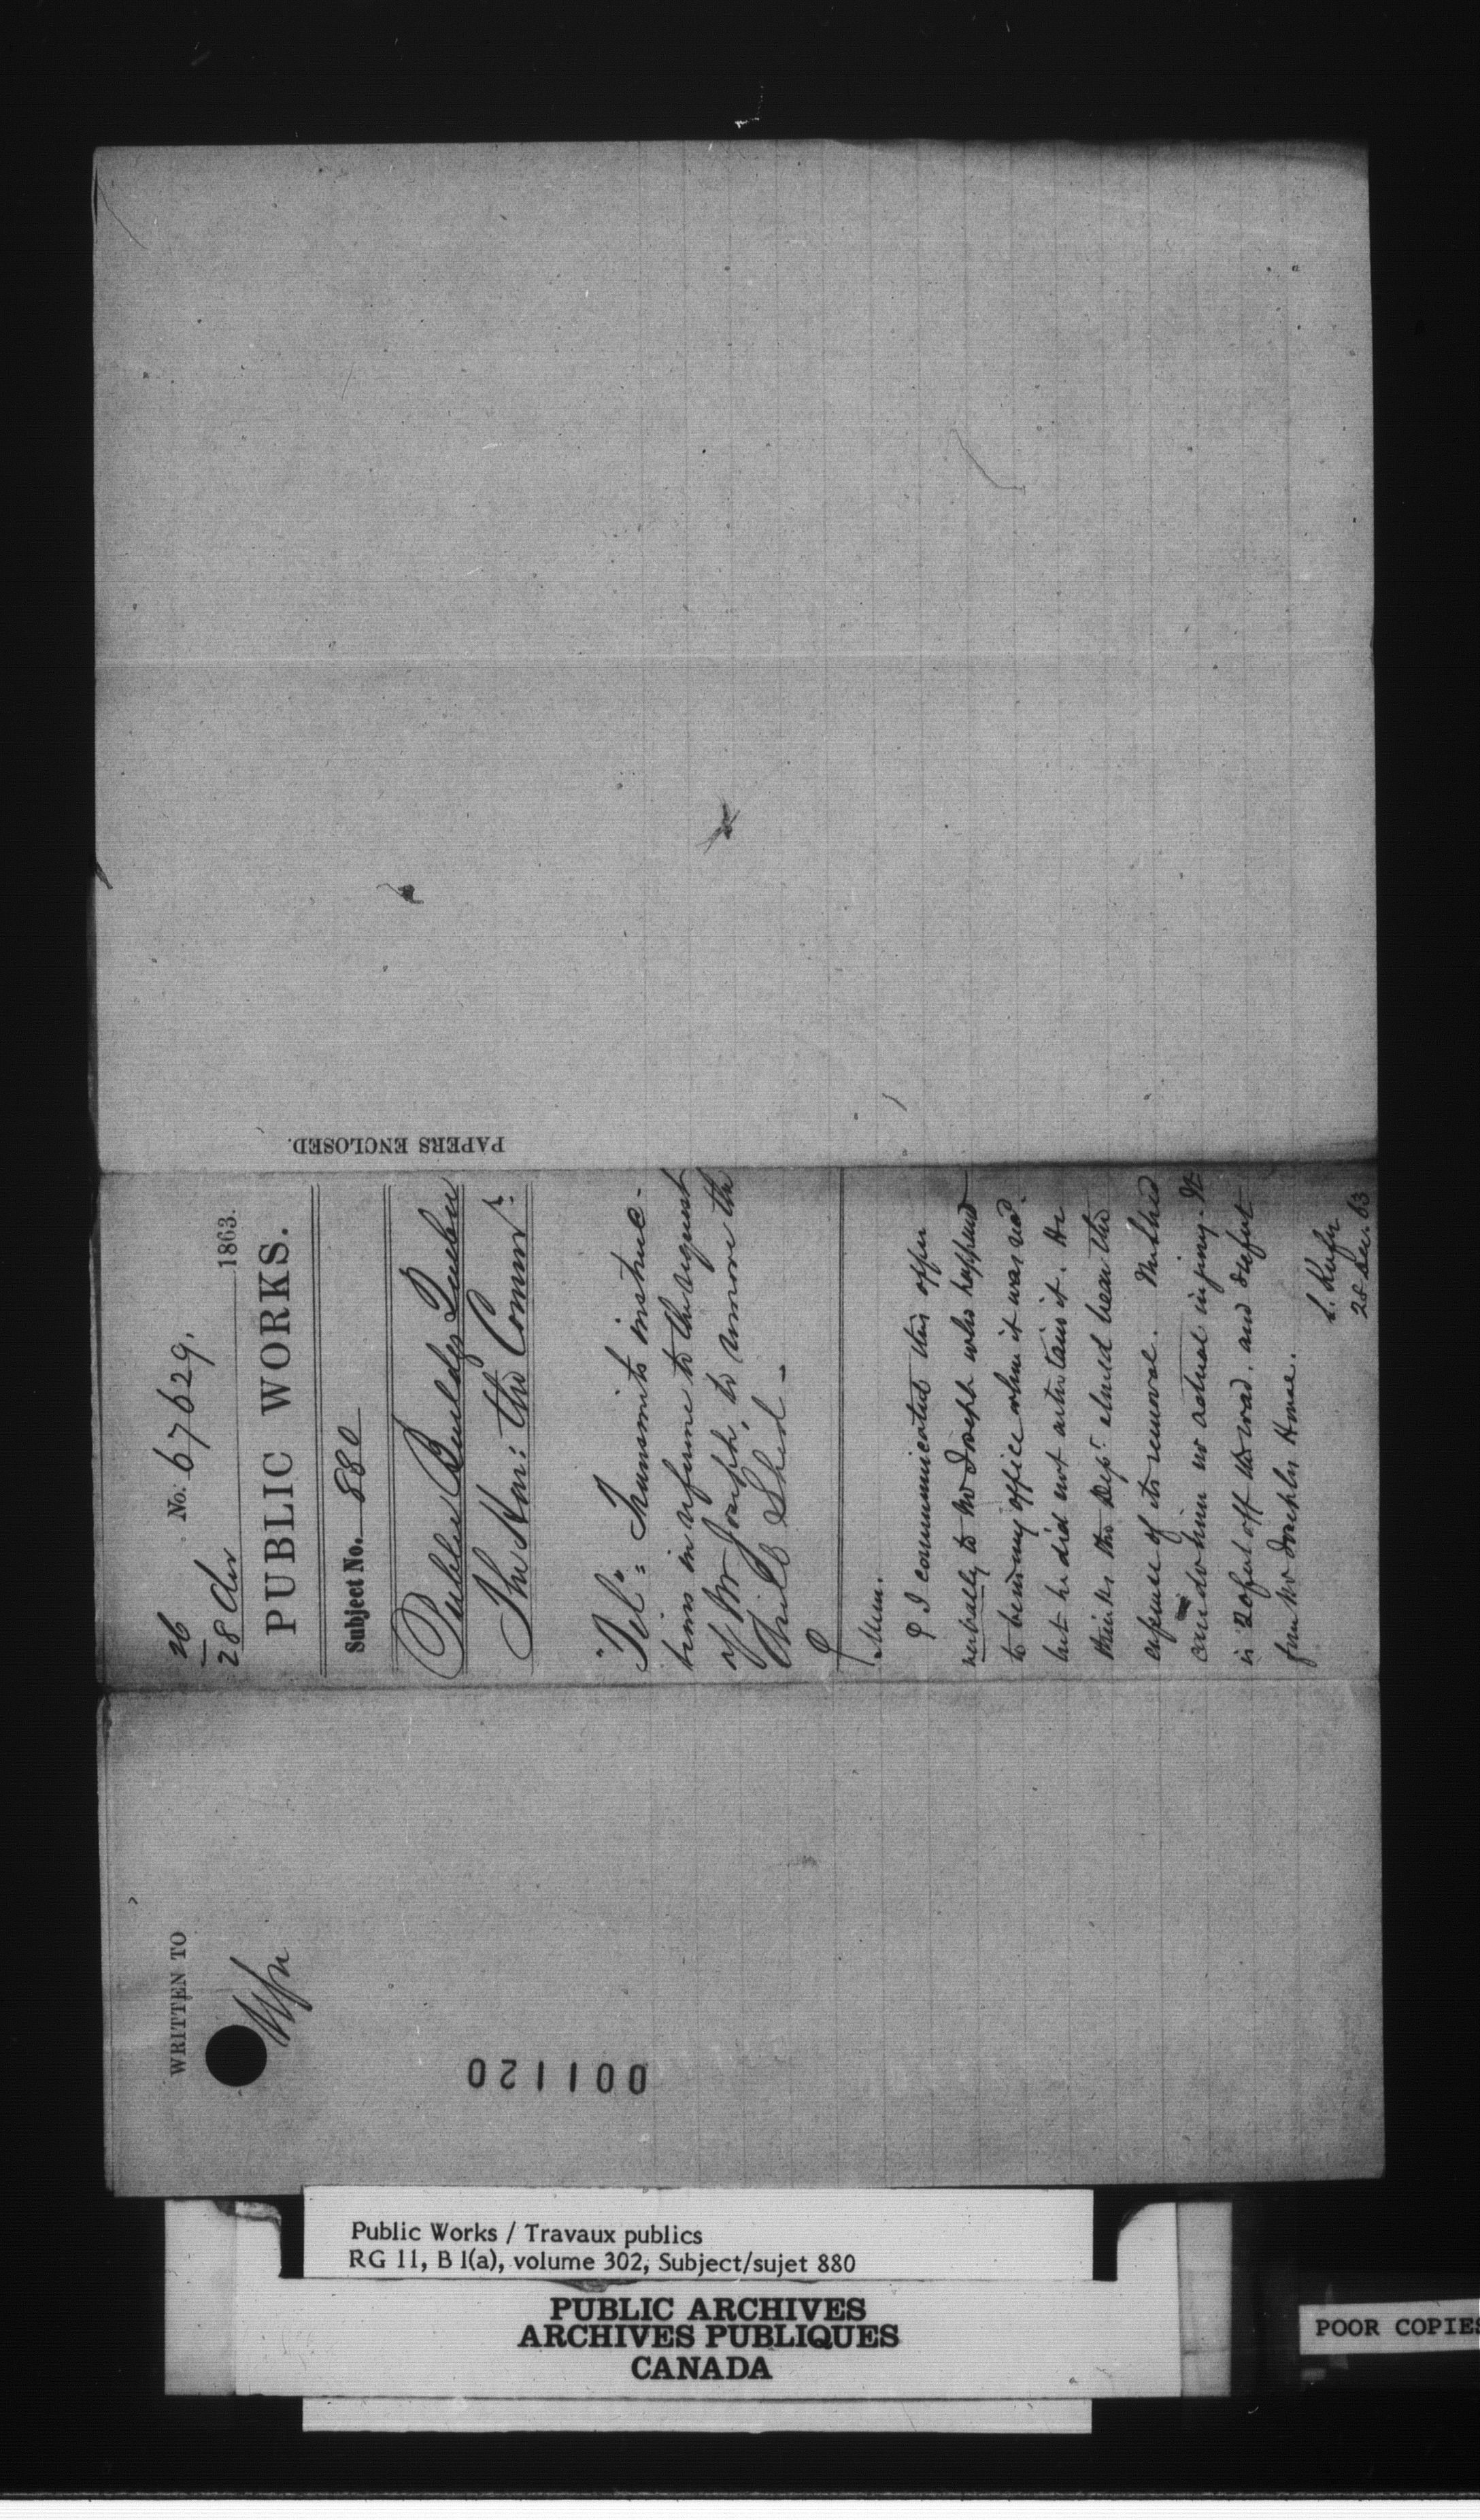 No. 67629.
26
28 Dec 1863.
PUBLIC WORKS.
Subject No. 880
Public Buildgs Quebec
The Hon: the Commr:
"Tel": Transmits instruc-
tions in reference to the request
of Mr Joseph, to remove the
Shed -
Mem.
I communicated this offer
verbally to Mr Joseph who happened
to be in my office when it was recd.
but he did not entertain it. He
thinks the Dept. should bear the
expense of its removal. The shed
can do him no actual injury. It
is 20 feet off the road, and feet
from Mr Joseph's House.
28 Decr. 63
PAPERS ENCLOSED.
WRITTEN TO
001120
Public Works / Travaux publics
RG 11, B 1(a), volume 302, Subject/sujet 880
PUBLIC ARCHIVES
ARCHIVES PUBLIQUES
CANADA
POOR COPIES